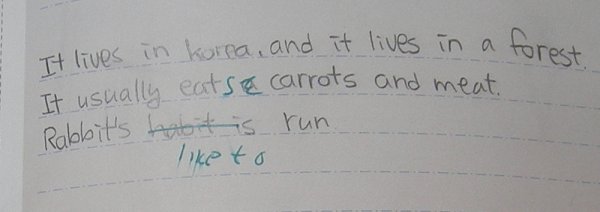 It lives in korea, and it lives in a forest.
It usually eats carrots and meat.
Rabbit's habit is run
like to